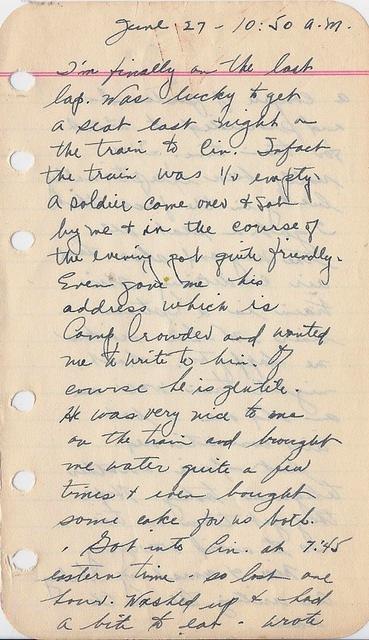 June 27 - 10:50 A.M.
I'm finally on the last
lap. Was lucky to get
a seat last night on
the train to Cin. Infact
the train was 1/2 empty.
A soldier came over & sat
by me & in the course of
the evening got quite friendly.
Even gave me his
address which is
Camp Crowder and wanted
me to write to him. Of
course he is gentile.
He was very nice to me
on the train and brought
me water quite a few
times & even bought
some cake for us both.
Got into Cin. at 7:45
eastern time - so lost one
hour. Washed up & had
a bite to eat - wrote